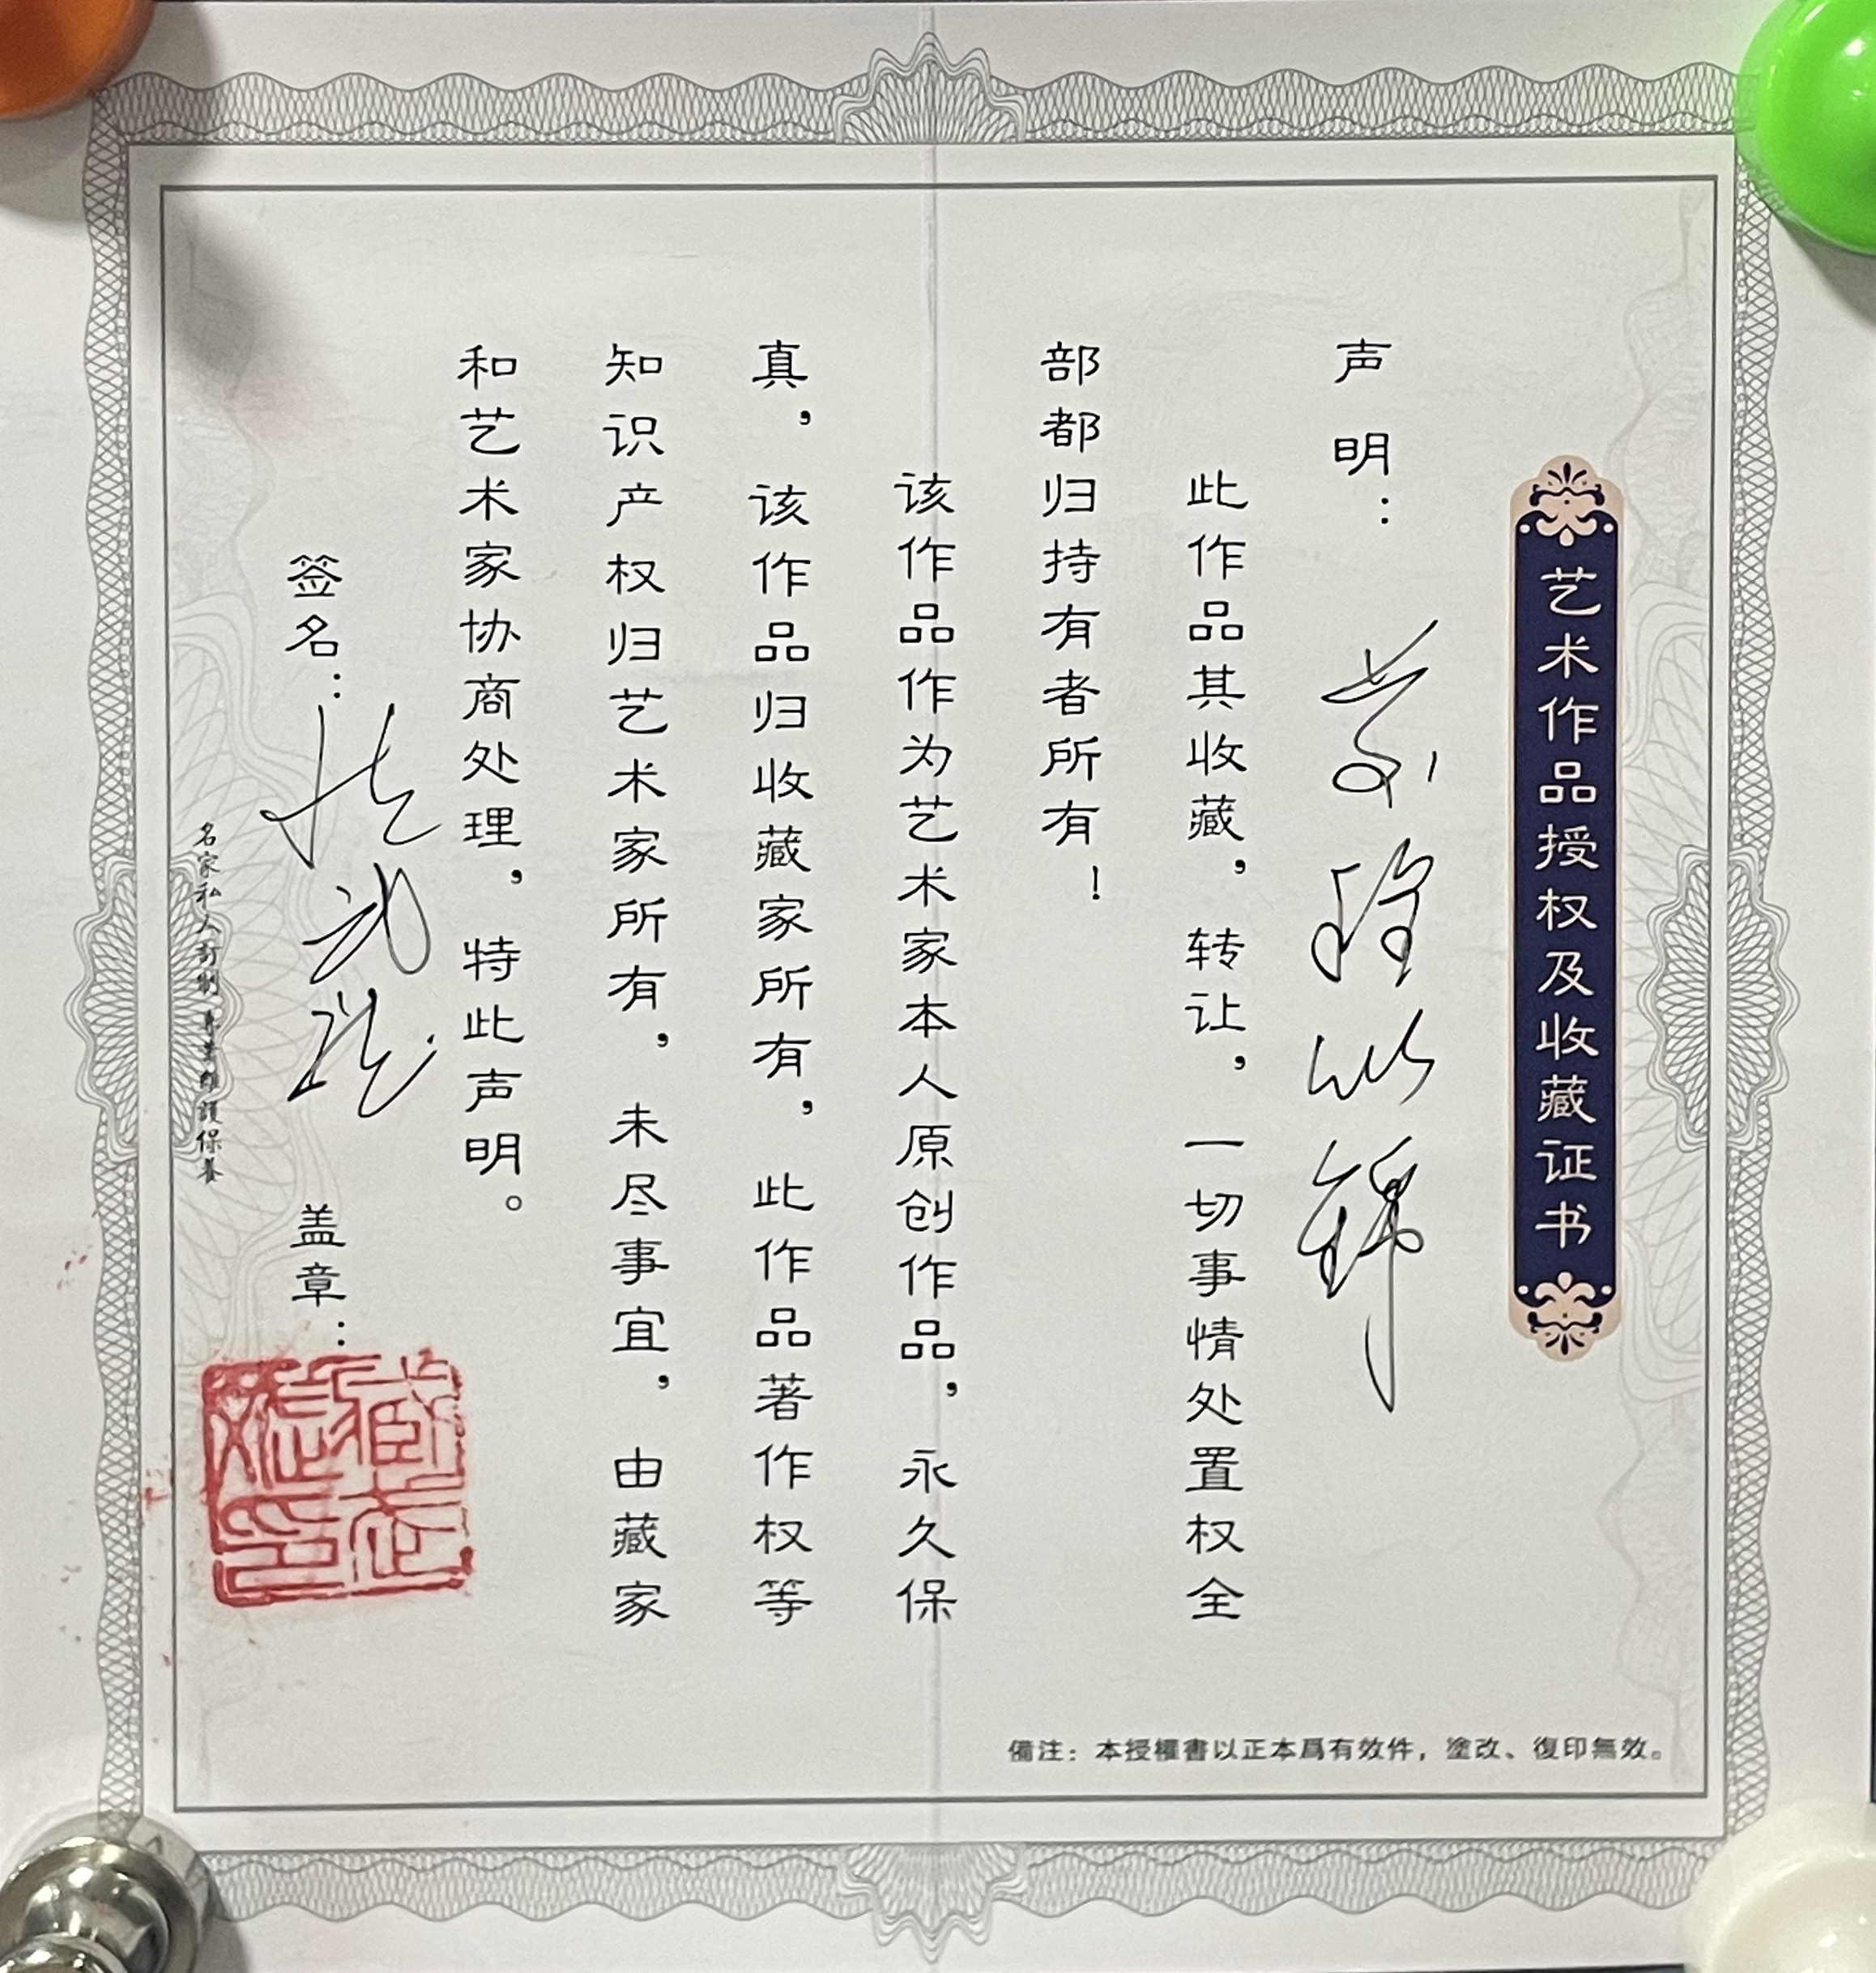 艺术作品授权及收藏证书
声明：前程似锦
此作品其收藏，转让，一切事情处置权全
部都归持有者所有！
该作品作为艺术家本人原创作品，永久保
真，该作品归收藏家所有，此作品著作权等
知识产权归艺术家所有，未尽事宜，由藏家
和艺术家协商处理，特此声明。
签名：
盖章：
名家私人訂制 專業維護保養
備注：本授權書以正本爲有效件，塗改、復印無效。